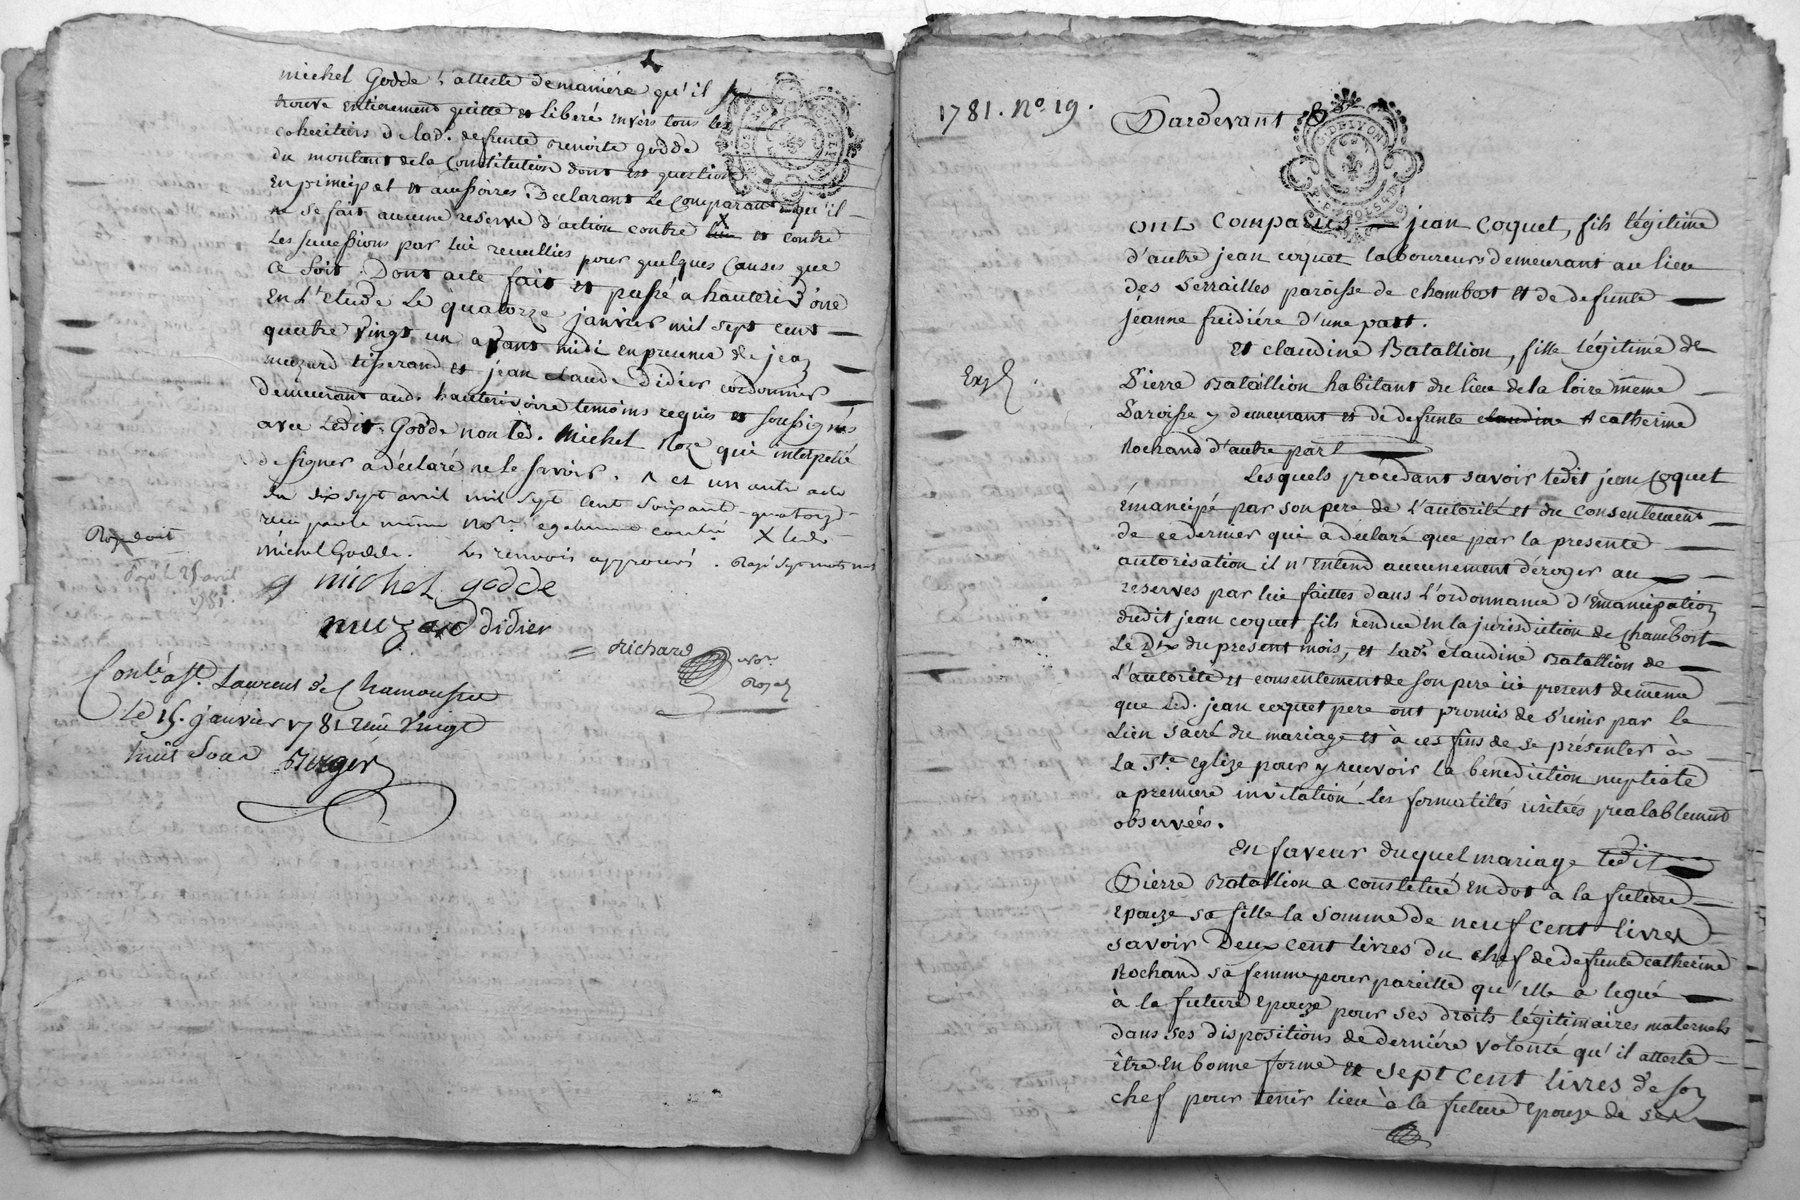 michel Godde l'atteste demaniére qu'il se
trouve entierement quitte et libéré envers tous les
coheritiers de lad. defunte Benoite godde
du montant de la Constitution dont est question
En principal et accessoires. Declarant Le Comparant qu'il
ne se fait aucune reserve d'action contre et contre
Les successions par lui recueillies pour quelques Causes que
ce soit. Dont acte fait et passé a hauterivoire
En L'etude Le quatorze janvier mil sept cent
quatre vingt un avant midi en presence de jean
muzard tisserand et jean claude Didier cordonnier
Demeurant aud. hauterivoire temoins requis et soussignés
avec Ledit. Godde non led. Michel Roze qui interpellé
de signer a déclaré ne le savoir. et un autre acte
du dix sept avril mil sept cent soixante quatorze
recu par le même No.re egalement controlé X led.
michel Godde. Les renvois approuvés. Rayé sept mots nuls
Roze doit
Payé L 25 avril
1781.
michel godde
muzard didier
Richard
No.re
Royal
Cont.é a St. Laurent de Chamousset
Le 15. janvier 1781 recu Vingt
huit sous Burger
1781. No. 19.
Pardevant &
G. DE LYON
ont comparus jean Coquet, fils légitime
d'autre jean coquet laboureurs demeurant au lieu
des Serrailles paroisse de chambost et de defunte
jeanne freidiére d'une part.
Et claudine Batallion, fille légitime de
Exp.
Pierre Batallion habitant du lieu de la loire même
Paroisse y demeurant et de defunte claudine catherine
Rochand d'autre part
Lesquels procédant savoir ledit jean Coquet
émancipé par son pere de l'autorité et du consentement
de ce dernier qui a déclaré que par la presente
autorisation il n'entend aucunement déroger au
reserves par lui faittes dans l'ordonnance d'Emancipation
dudit jean coquet fils rendue En la jurisdiction de Chambost
Le Dix du present mois, et Lad. claudine Batallion de
L'autorité et consentement de son pere ici present de même
que Led. jean coquet pere ont promis de s'unir par le
Lien sacré du mariage et à ces fins de se présenter à
La Ste. Eglize pour y recevoir la benediction nuptiale
a premiere invitation les formalités usitées préalablement
observées.
En faveur duquel mariage ledit
Pierre Batallion a constitué En dot à la future
Epouze sa fille la somme de neuf cent livres
savoir Deux cent livres du chef de defunte catherine
Rochand sa femme pour pareille qu'elle a legué
à la future Epouze pour ses droits légitimaires maternels
dans ses dispositions de derniére volonté qu'il atteste
être En bonne forme et sept cent livres de son
chef pour tenir lieu à la future Epouze de ses